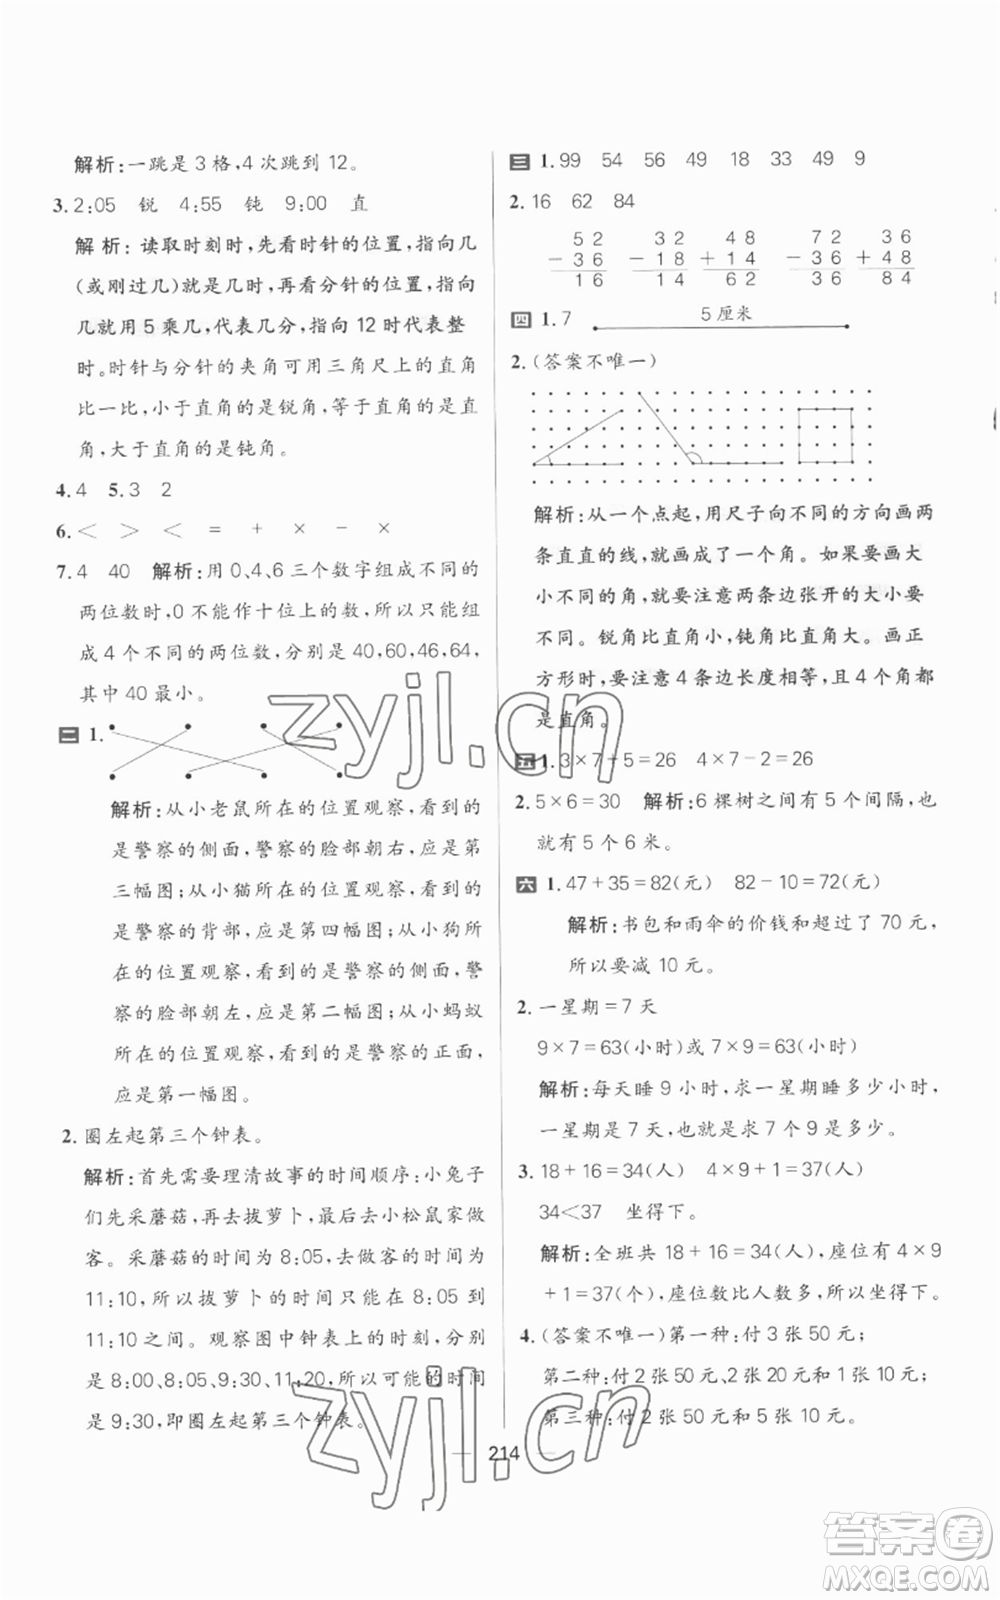 解析:一跳是3格,4次跳到12。
3. 2:05 锐 4:55 钝 9:00 直
解析:读取时刻时,先看时针的位置,指向几
(或刚过几)就是几时,再看分针的位置,指向
几就用5乘几,代表几分,指向12时代表整
时。时针与分针的夹角可用三角尺上的直角
比一比,小于直角的是锐角,等于直角的是直
角,大于直角的是钝角。
4. 4 5. 3 2
6. < > < = + × − ×
7. 4 40 解析:用0、4、6三个数字组成不同的
两位数时,0不能作十位上的数,所以只能组
成4个不同的两位数,分别是40,60,46,64,
其中40最小。
二 1.
解析:从小老鼠所在的位置观察,看到的
是警察的侧面,警察的脸部朝右,应是第
三幅图;从小猫所在的位置观察,看到的
是警察的背部,应是第四幅图;从小狗所
在的位置观察,看到的是警察的侧面,警
察的脸部朝左,应是第二幅图;从小蚂蚁
所在的位置观察,看到的是警察的正面,
应是第一幅图。
2. 圈左起第三个钟表。
解析:首先需要理清故事的时间顺序:小兔子
们先采蘑菇,再去拔萝卜,最后去小松鼠家做
客。采蘑菇的时间为8:05,去做客的时间为
11:10,所以拔萝卜的时间只能在8:05与
11:10之间。观察图中钟表上的时刻,分别
是8:00、8:05、9:30、11:20,所以可能的时间
是9:30,即圈左起第三个钟表。
三 1. 99 54 56 49 18 33 49 9
2. 16 62 84
5 2 3 2 4 8 7 2 3 6
− 3 6 − 1 8 + 1 4 − 3 6 + 4 8
1 6 1 4 6 2 3 6 8 4
四 1. 7 5厘米
2. (答案不唯一)
解析:从一个点起,用尺子向不同的方向画两
条直直的线,就画成了一个角。如果要画大
小不同的角,就要注意两条边张开的大小要
不同。锐角比直角小,钝角比直角大。画正
方形时,要注意4条边长度相等,且4个角都
是直角。
五 1. 3×7+5=26 4×7−2=26
2. 5×6=30 解析:6棵树之间有5个间隔,也
就有5个6米。
六 1. 47+35=82(元) 82−10=72(元)
解析:书包和雨伞的价钱和超过了70元,
所以要减10元。
2. 一星期=7天
9×7=63(小时)或7×9=63(小时)
解析:每天睡9小时,求一星期睡多少小时,
一星期是7天,也就是求7个9是多少。
3. 18+16=34(人) 4×9+1=37(人)
34<37 坐得下。
解析:全班共18+16=34(人),座位有4×9
+1=37(个),座位数比人数多,所以坐得下。
4. (答案不唯一)第一种:付3张50元;
第二种:付2张50元、2张20元和1张10元;
第三种:付2张50元和5张10元。
214
zyjl.cn
zyjl.cn
答案卷
MXQE.COM